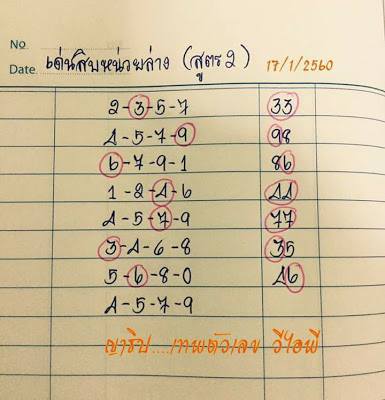 No.
Date. เด่นสิบหน่วยล่าง (สูตร 2) 17/1/2560
2-3-5-7 33
4-5-7-9 98
6-7-9-1 86
1-2-4-6 44
4-5-7-9 77
3-4-6-8 35
5-6-8-0 46
4-5-7-9
ญาธิป....เทพตัวเลข วีไอพี